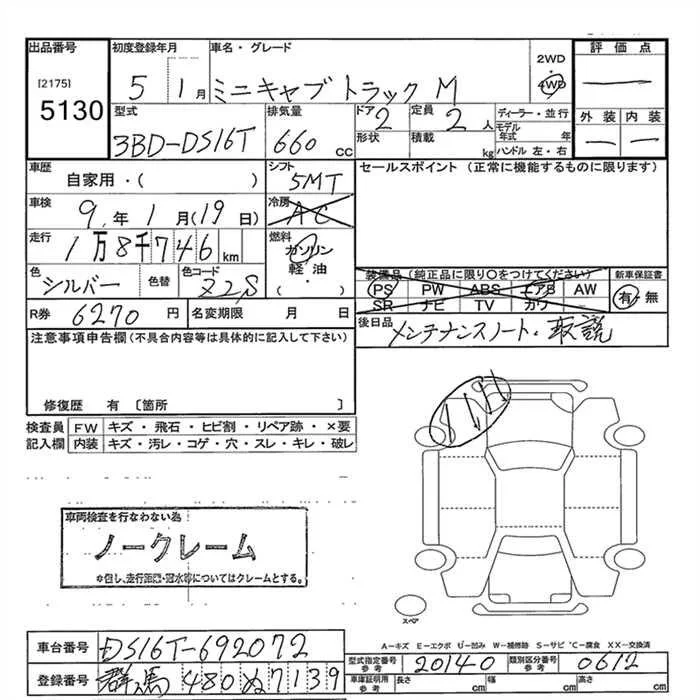 出品番号 初度登録年月 車名・グレード 評価点
[2175]
5130
5 1月 ミニキャブトラック M 2WD・4WD
型式 排気量 ドア 定員 ディーラー・並行 外装 内装
3BD-DS16T 660CC 2 2人 モデル年式 年
形状 積載 kg ハンドル 左・右
車歴 シフト セールスポイント (正常に機能するものに限ります)
自家用・( ) 5MT
車検 冷房
9年1月(19日) AC
走行 燃料
1万8千746km ガソリン・軽油・( )
装備品(純正品に限り○をつけてください) 新車保証書
色 シルバー 色替 色コード Z2S
PS PW ABS エアB AW 有・無
SR ナビ TV カワ
R券 6270円 名変期限 月 日
後日品 メンテナンスノート・取説
注意事項申告欄(不具合内容等は具体的に記入して下さい)
修復歴 有 〔箇所 〕
検査員 FW キズ・飛石・ヒビ割・リペア跡・×要
記入欄 内装 キズ・汚レ・コゲ・穴・スレ・キレ・破レ
車両検査を行なわない為
ノークレーム
※但し、走行距離・冠水等についてはクレームとする。
スペア
A-キズ E-エクボ U-凹み W-補修跡 S-サビ C-腐食 XX-交換済
車台番号 DS16T-692072
型式指定番号 参考 20140 類別区分番号 参考 0612
登録番号 群馬 480 ぬ 7139
車庫証明用 参考 長さ cm 幅 cm 高さ cm